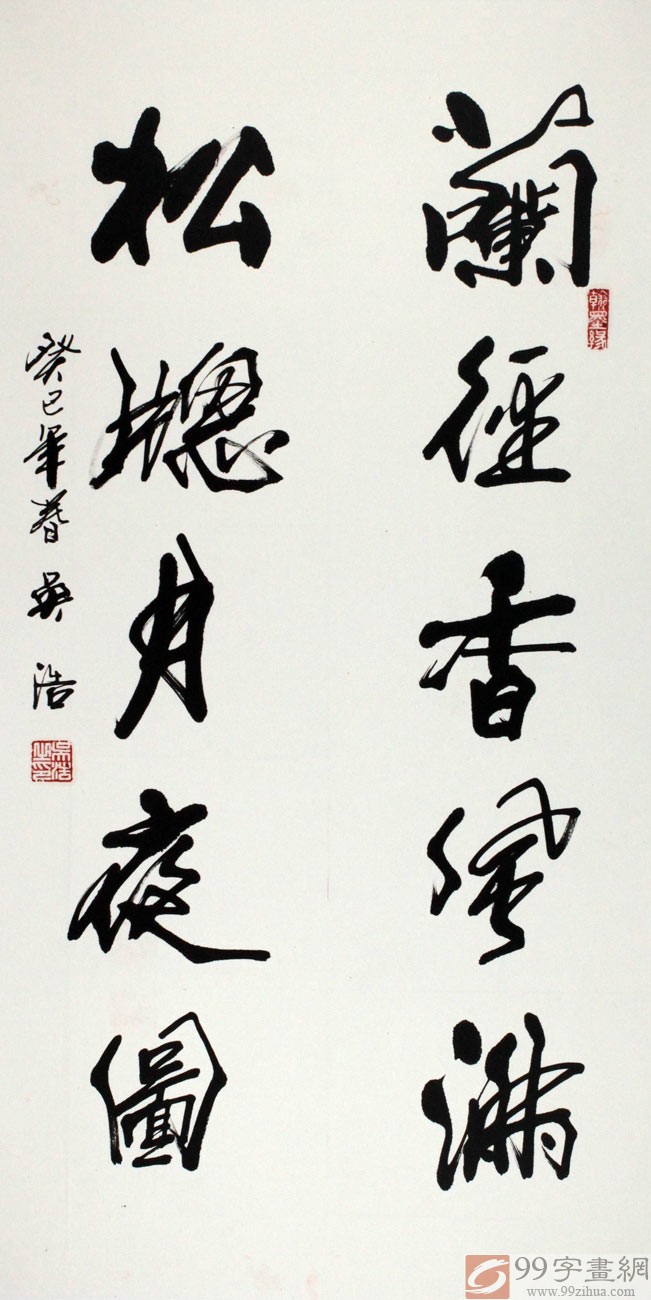 蘭徑香風滿
松牕月夜圖
癸巳年春 吳浩
翰墨緣
吳浩之印
99字畫網
www.99zihua.com